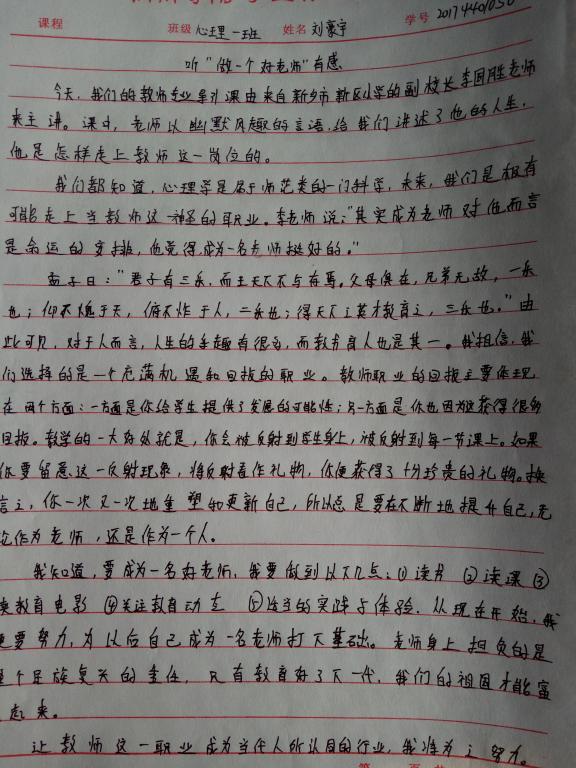 课程 班级 心理一班 姓名 刘豪宇 学号
听"做一个好老师"有感
今天,我们的教师专业导引课由来自新乡市新区小学的副校长李国胜老师
来主讲。课中,老师以幽默风趣的言语,给我们讲述了他的人生,
他是怎样走上教师这一岗位的。
我们都知道,心理学是属于师范类的一门科学,未来,我们是极有
可能走上当教师这一神圣的职业。李老师说:"其实成为老师对他而言
是命运的安排,他觉得成为一名老师挺好的。"
孟子曰:"君子有三乐,而王天下不与存焉。父母俱在,兄弟无故,一乐
也;仰不愧于天,俯不怍于人,二乐也;得天下之英才教育之,三乐也。"由
此可见,对于人而言,人生的乐趣有很多,而教书育人也是其一。我相信,我
们选择的是一个充满机遇和回报的职业。教师职业的回报主要体现
在两个方面:一方面是你给学生提供了发展的可能性;另一方面是你也因为这获得很多
回报。教学的一大好处就是,你会被反射到学生身上,被反射到每一节课上。如果
你要留意这一反射现象,将反射看作礼物,你便获得了十分珍贵的礼物。换
言之,你一次又一次地重塑和更新自己,所以总是要在不断地提升自己,无
论作为老师,还是作为一个人。
我知道,要成为一名好老师,我要做到以下几点:①读书 ②读课 ③
教育电影 ④关注教育动态 ⑤适当的实践与体验。从现在开始,我
更要努力,为以后自己成为一名老师打下基础。老师身上担负的是
整个民族复兴的重任,只有教育好了下一代,我们的祖国才能富
起来。
让教师这一职业成为当代人所认同的行业,我将为之努力。